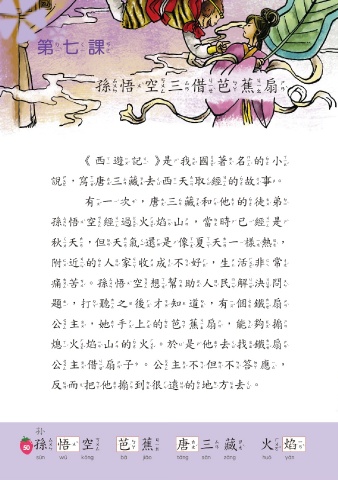 第七課
孫悟空三借芭蕉扇
《西遊記》是我國著名的小
說，寫唐三藏去西天取經的故事。
有一次，唐三藏和他的徒弟
孫悟空經過火焰山，當時已經是
秋天，但天氣還是像夏天一樣熱，
附近的人家收成不好，生活非常
痛苦。孫悟空想幫助人民解決問
題，打聽之後才知道，有個鐵扇
公主，她手上的芭蕉扇，能夠搧
熄火焰山的火。於是他去找鐵扇
公主借扇子。公主不但不答應，
反而把他搧到很遠的地方去。
50 孫 悟 空 芭 蕉 唐 三 藏 火 焰
sūn wù kōng bā jiāo táng sān zàng huǒ yàn